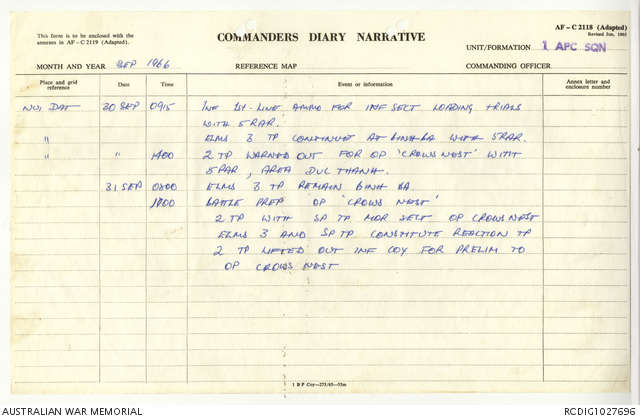 AF - C 2118 (Adapted)
Revised Jun, 1965
This form is to be enclosed with the
annexes in AF-C 2119 (Adapted).
COMMANDERS DIARY NARRATIVE
UNIT/FORMATION 1 APC SQN
MONTH AND YEAR SEP 1966 REFERENCE MAP COMMANDING OFFICER
Place and grid reference Date Time Event or information Annex letter and enclosure number
NUI DAT 30 SEP 0915 1st-LINE AMMO FOR INF SECT LOADING TRIALS
WITH 5 RAR.
" ELMS 3 TP CONTINUE AT BINH BA WITH 5 RAR.
" " 1400 2 TP WARNED OUT FOR OP 'CROWS NEST' WITH
5 RAR, AREA DUC THANH.
31 SEP 0800 ELMS 3 TP REMAIN BINH BA.
BATTLE PREP OP 'CROWS NEST'
2 TP WITH SP TP MOR SECT OP CROWS NEST
ELMS 3 AND SP TP CONSTITUTE REACTION TP
2 TP LIFTED OUT INF COY FOR PRELIM TO
OP CROWS NEST
1 B P Coy—273/65—55m
AUSTRALIAN WAR MEMORIAL
RCDIG1027696